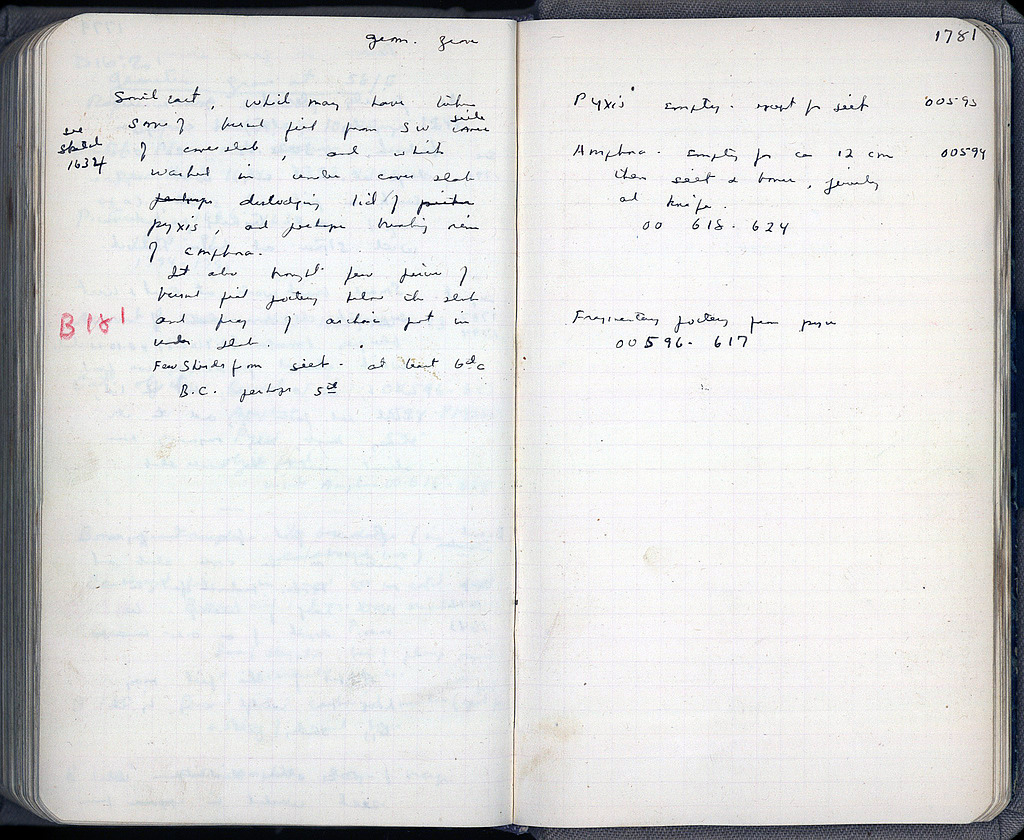 geom. grave
which may have
some of burial pit from SW side
corner
see sketch 1634
of cover slab, and which
washed in under cover slab
perhaps dislodging lid of
pyxis, and perhaps breaking rim
of amphora.
It also brought few pieces of
burial pit pottery below the slab
and frag of archaic pot in
under slab.
B 181
Few sherds from silt. at least 6th c
B.C. perhaps 5th
1781
Pyxis empty. except for silt 00593
Amphora. empty for ca 12 cm 00594
then silt & bones, jewelry
and knife.
00 618. 624
Fragmentary pottery from pyre
00596. 617